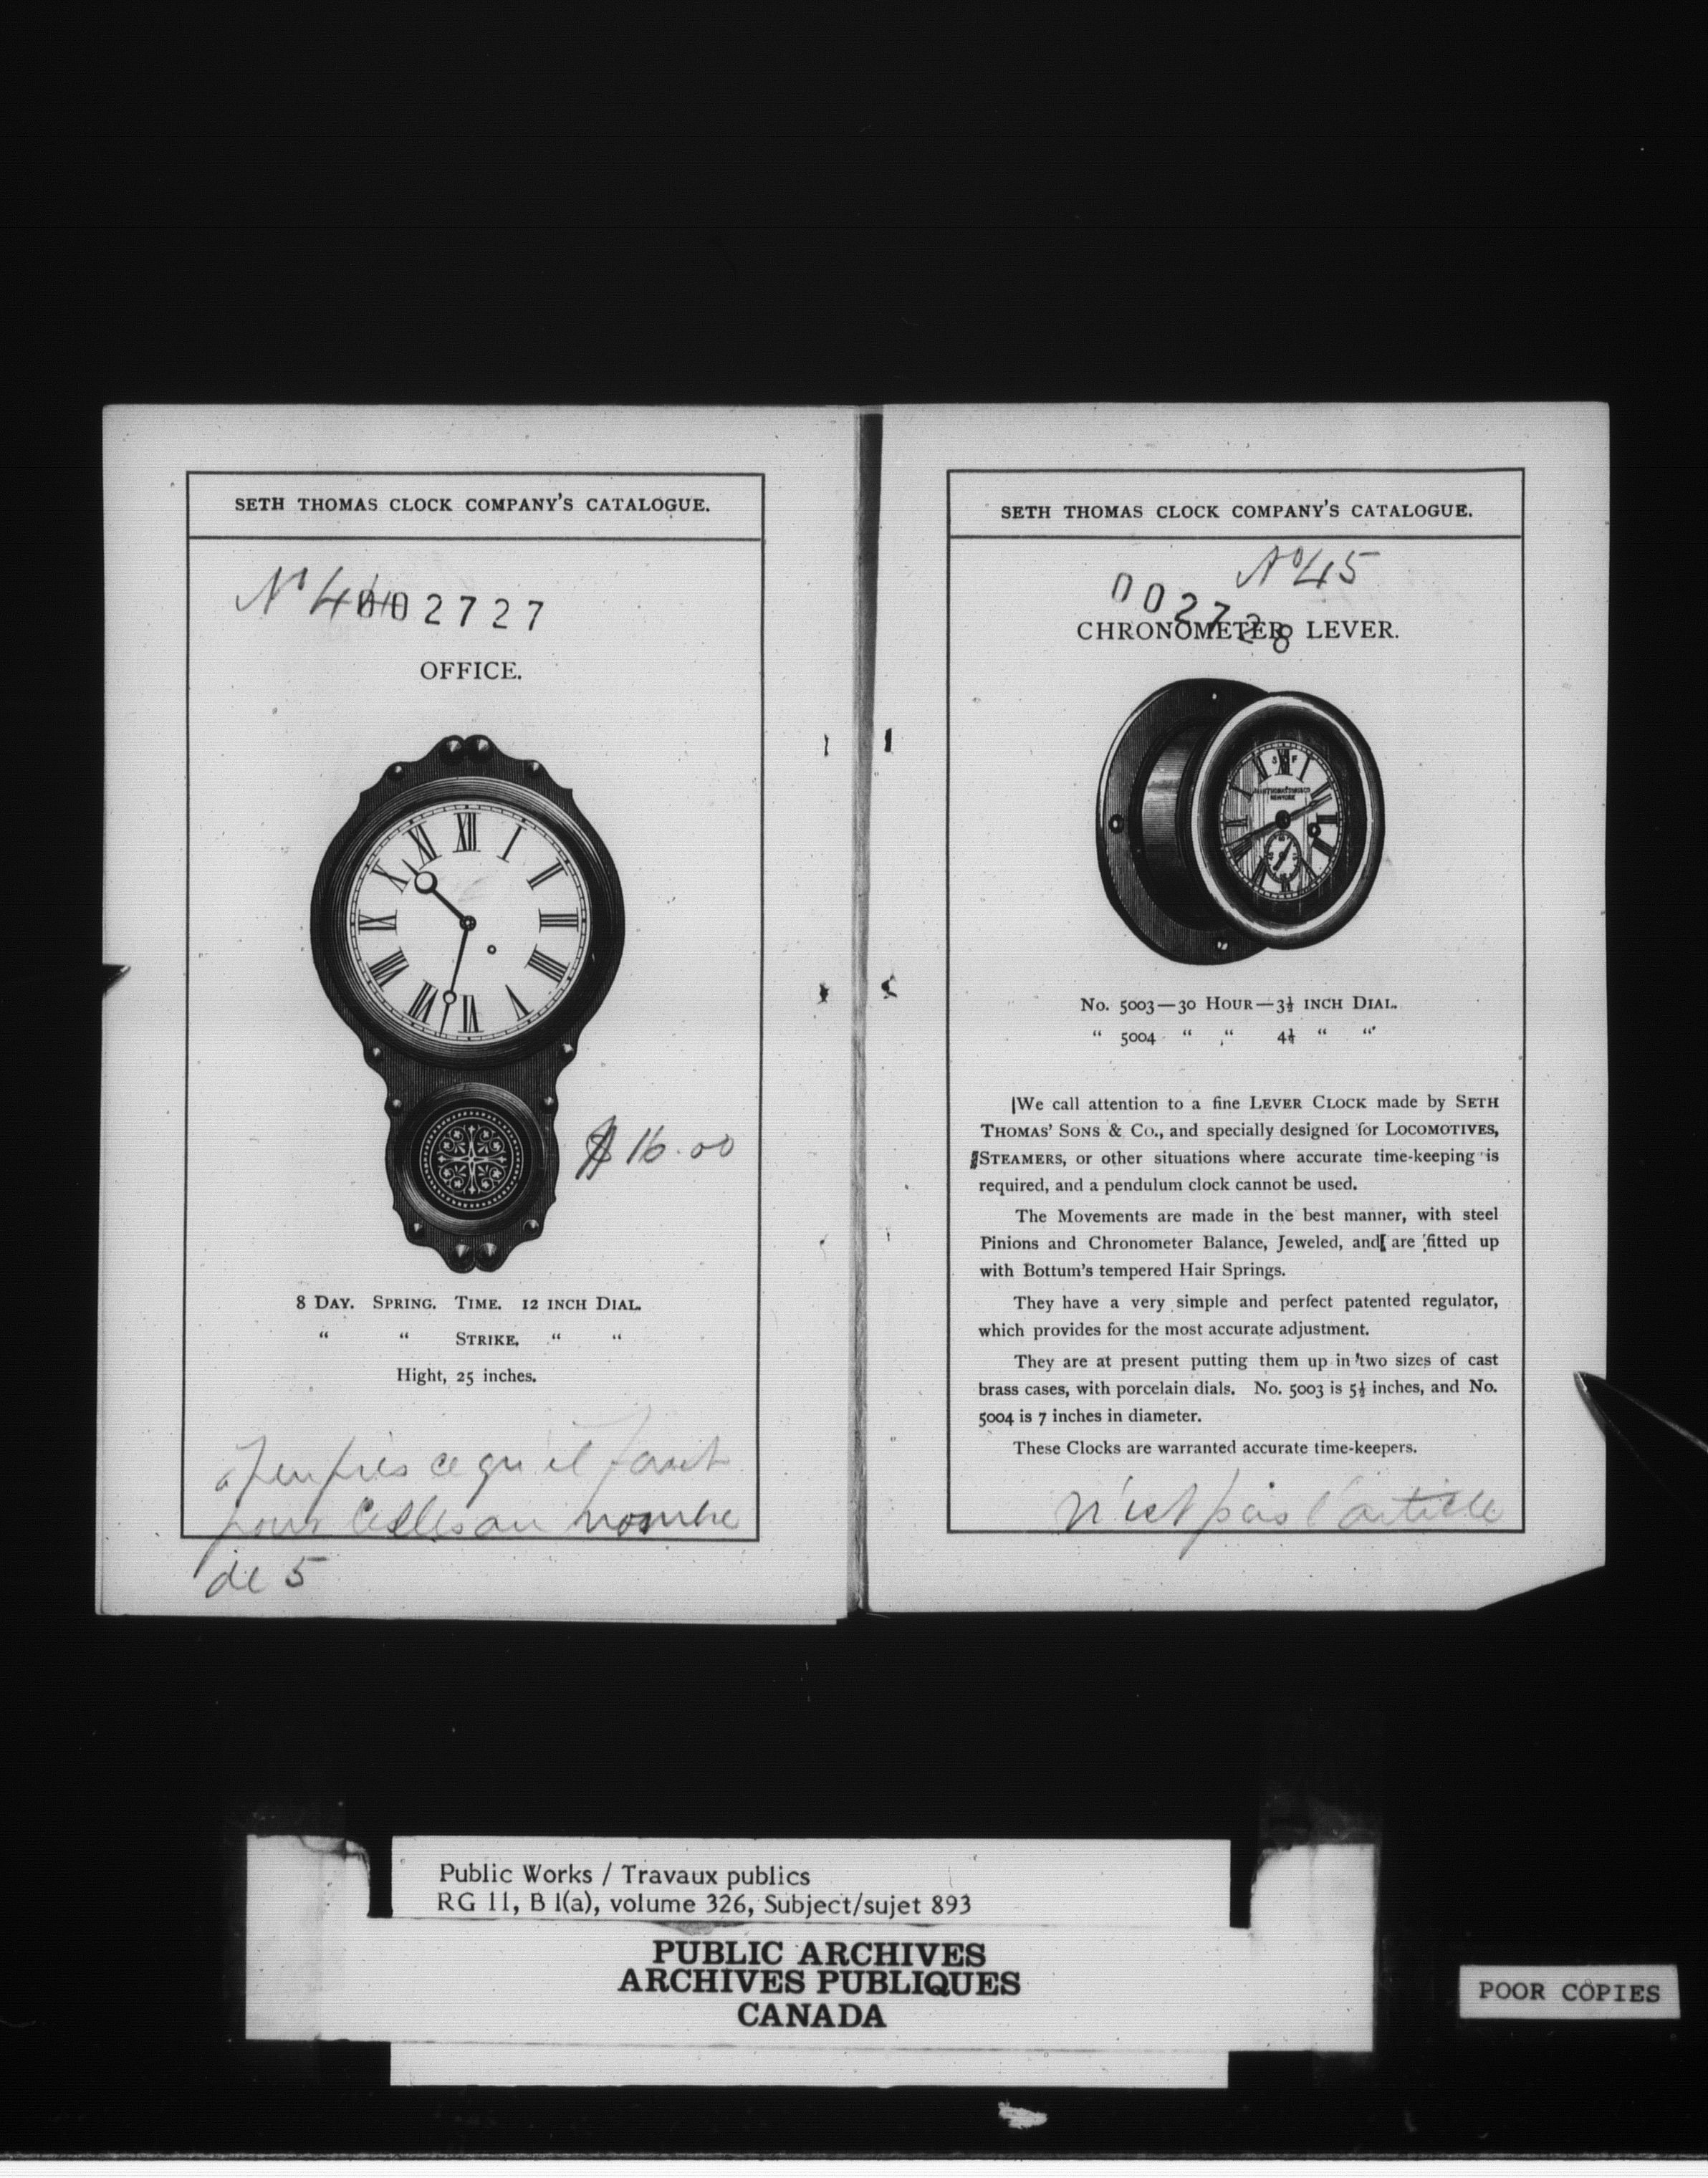 SETH THOMAS CLOCK COMPANY'S CATALOGUE.
No 44
002727
OFFICE.
XII I II III IIII V VI VII VIII IX X XI
$16.00
8 DAY. SPRING. TIME. 12 INCH DIAL.
“ “ STRIKE. “ “
Hight, 25 inches.
ce qu'il faut
pour au nombre
de 5
SETH THOMAS CLOCK COMPANY'S CATALOGUE.
No 45
002728
CHRONOMETER LEVER.
S F
NEW YORK
No. 5003—30 HOUR—3½ INCH DIAL.
“ 5004 “ “ 4½ “ “
We call attention to a fine LEVER CLOCK made by SETH
THOMAS' SONS & CO., and specially designed for LOCOMOTIVES,
STEAMERS, or other situations where accurate time-keeping is
required, and a pendulum clock cannot be used.
The Movements are made in the best manner, with steel
Pinions and Chronometer Balance, Jeweled, and are fitted up
with Bottum's tempered Hair Springs.
They have a very simple and perfect patented regulator,
which provides for the most accurate adjustment.
They are at present putting them up in two sizes of cast
brass cases, with porcelain dials. No. 5003 is 5½ inches, and No.
5004 is 7 inches in diameter.
These Clocks are warranted accurate time-keepers.
n'est pas l'article
Public Works / Travaux publics
RG 11, B 1(a), volume 326, Subject/sujet 893
PUBLIC ARCHIVES
ARCHIVES PUBLIQUES
CANADA
POOR COPIES